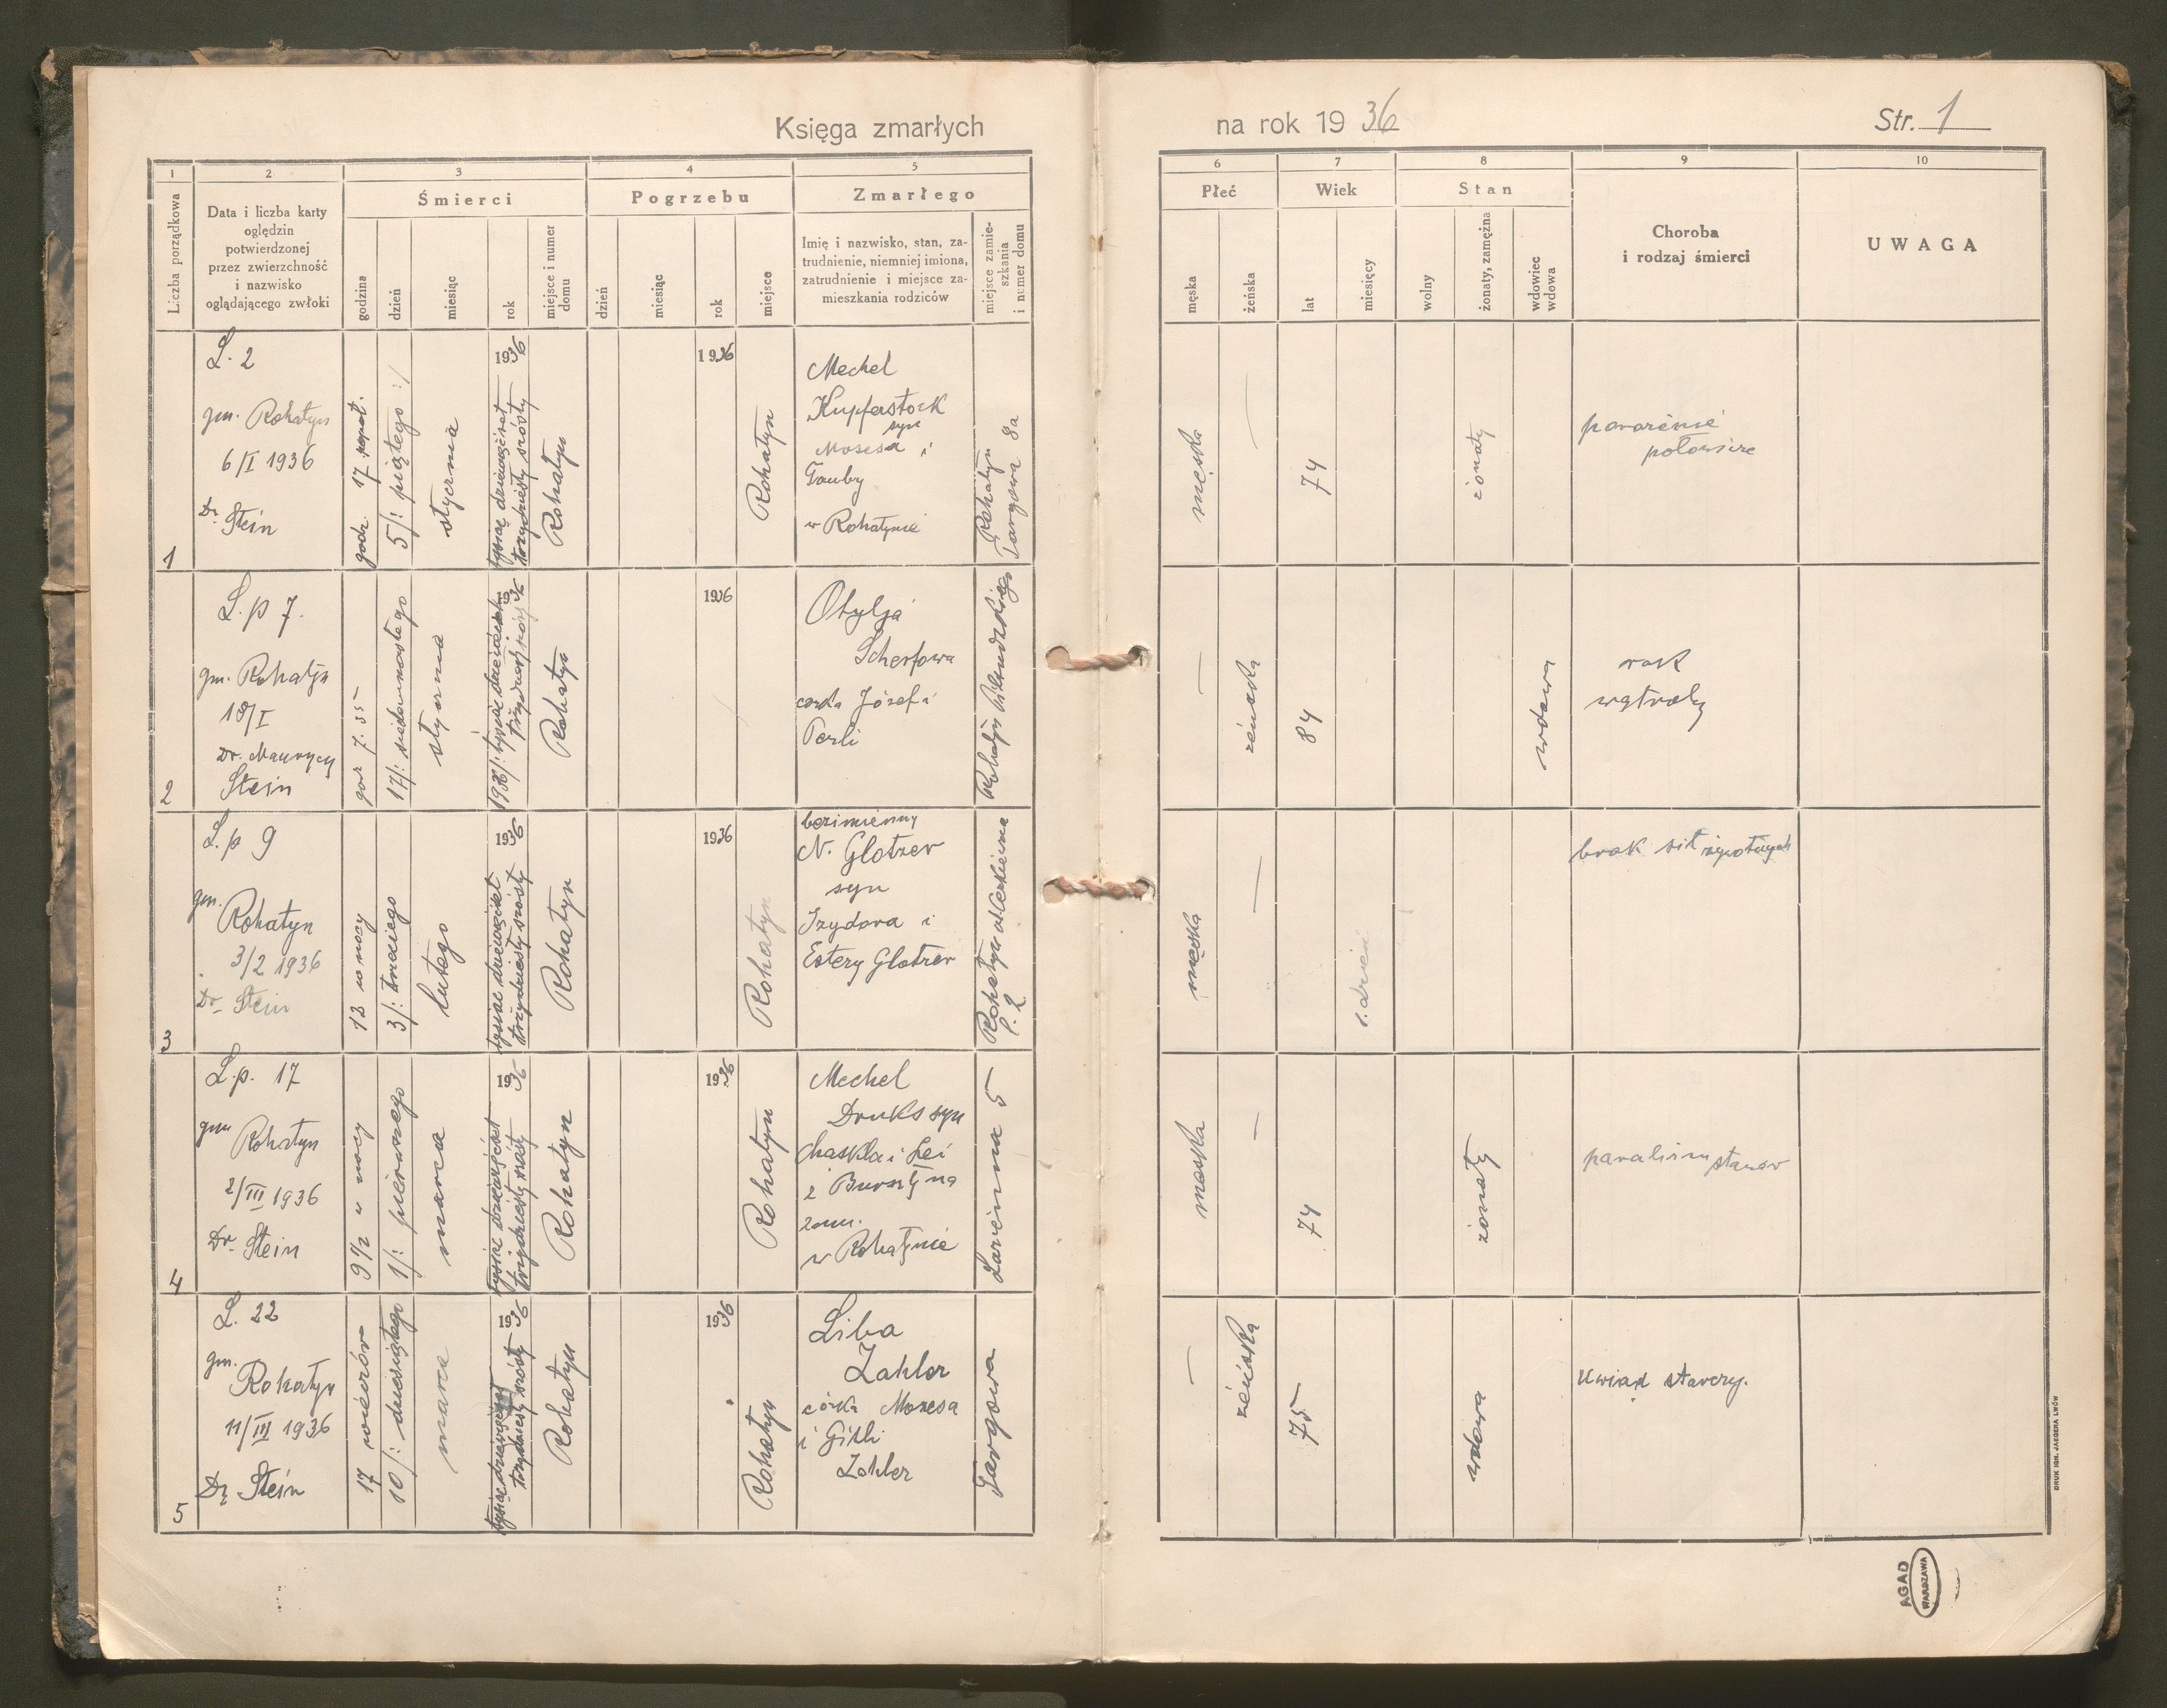 Księga zmarłych
na rok 1936
Str. 1
1
2
3
4
5
6
7
8
9
10
Liczba porządkowa
Data i liczba karty
oględzin
potwierdzonej
przez zwierzchność
i nazwisko
oglądającego zwłoki
Śmierci
godzina
dzień
miesiąc
rok
miejsce i numer
domu
Pogrzebu
dzień
miesiąc
rok
miejsce
Zmarłego
Imię i nazwisko, stan, za-
trudnienie, niemniej imiona,
zatrudnienie i miejsce za-
mieszkania rodziców
miejsce zamie-
szkania
i numer domu
Płeć
męska
żeńska
Wiek
lat
miesięcy
Stan
wolny
żonaty, zamężna
wdowiec
wdowa
Choroba
i rodzaj śmierci
UWAGA
1
L. 2
gm. Rohatyn
6/I 1936
Dr. Stein
godz. 17 popoł.
5/: piątego :/
stycznia
1936
tysiąc dziewięćset
trzydziesty szósty
Rohatyn
1936
Rohatyn
Mechel
Kupferstock
syn
Mosesa i
Tauby
w Rohatynie
Rohatyn
Targowa 8a
męska
—
74
żonaty
porażenie
połowicze
2
L. p 7.
gm. Rohatyn
18/I
Dr. Maurycy
Stein
godz 7.35
17/: siedemnastego
stycznia
1936
1936/: tysiąc dziewięćset
trzydziesty szósty
Rohatyn
1936
Otylja
Scherfowa
córka Józefa i
Perli
Rohatyn Piłsudskiego
—
żeńska
84
wdowa
rak
wątroby
3
L. p 9
gm.
Rohatyn
3/2 1936
Dr. Stein
12 w nocy
3/: trzeciego
lutego
1936
tysiąc dziewięćset
trzydziesty szósty
Rohatyn
1936
Rohatyn
bezimienny
N. Glotzer
syn
Izydora i
Estery Glotzer
Rohatyn ul. Cerkiewna
l. 2
męska
—
1. dzień
brak sił żywotnych
4
L.p. 17
gm Rohatyn
2/III 1936
Dr. Stein
9 1/2 w nocy
1/: pierwszego
marca
1936
tysiąc dziewięćset
trzydziesty szósty
Rohatyn
1936
Rohatyn
Mechel
Druks syn
Chaskla i Lei
z Bursztyna
zam.
w Rohatynie
Zarzeczna 5
męska
—
74
żonaty
paraliżm
5
L. 22
gm.
Rohatyn
11/III 1936
Dr. Stein
17 wieczór
10/: dziesiątego
marca
1936
tysiąc dziewięćset
trzydziesty szósty
Rohatyn
1936
Rohatyn
Liba
Zahler
córka Mozesa
i Gitli
Zahler
Targowa
—
żeńska
75
wdowa
Uwiąd starczy.
DRUK IGN. JAEGERA LWÓW
AGAD
WARSZAWA